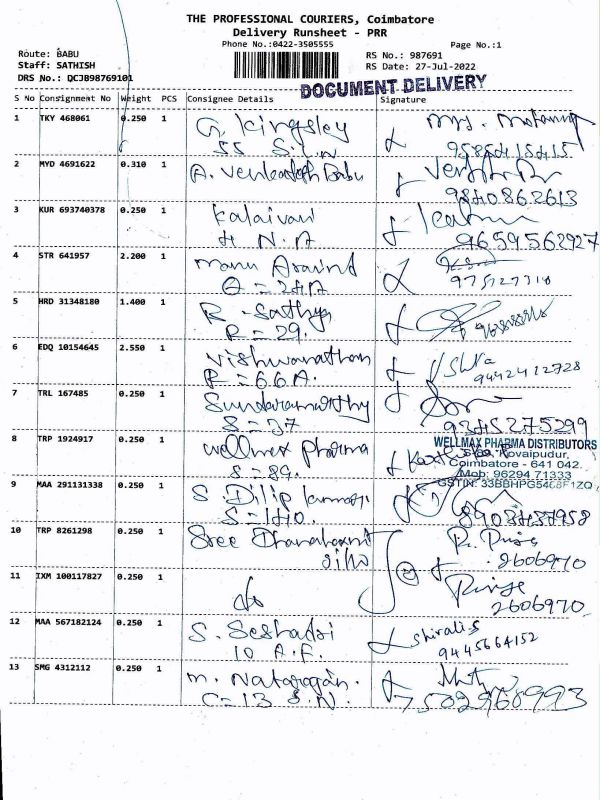 THE PROFESSIONAL COURIERS, Coimbatore
Delivery Runsheet - PRR
Phone No.:0422-3505555 Page No.:1
Route: BABU RS No.: 987691
Staff: SATHISH RS Date: 27-Jul-2022
DRS No.: QCJB98769101
DOCUMENT DELIVERY
S No Consignment No Weight PCS Consignee Details Signature
1 TKY 468061 0.250 1 G. Kingsley
55 S.I.N
2 MYD 4691622 0.310 1 A. Venkatesh Babu
9840862613
3 KUR 693740378 0.250 1 Kalaivani
H N.A 9659562927
4 STR 641957 2.200 1 Manu Aravind
5 HRD 31348180 1.400 1 R. Sathya
R = 29.
6 EDQ 10154645 2.550 1 Vishwanathan
R = 66 A. 9442412728
7 TRL 167485 0.250 1 Sundaramurthy
S = 37 9345275299
8 TRP 1924917 0.250 1 Wellmax Pharma
S = 89.
WELLMAX PHARMA DISTRIBUTORS
Kovaipudur,
Coimbatore - 641 042.
Mob: 96294 71333
9 MAA 291131338 0.250 1 S. Dilip Kumar
S = 140. 8903457958
10 TRP 8261298 0.250 1 Sree Dhanalaxmi
2606970
11 IXM 100117827 0.250 1 do
2606970
12 MAA 567182124 0.250 1 S. Seshadri shivali.s
10 A.F. 9445664152
13 SMG 4312112 0.250 1 M. Natarajan.
C = 13 S.N. 7502968993